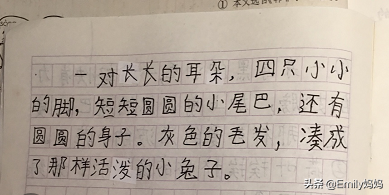 ① 本文选的
一对长长的耳朵，四只小小
的脚，短短圆圆的小尾巴，还有
圆圆的身子。灰色的毛发，凑成
了那样活泼的小兔子。
头条@Emily妈妈